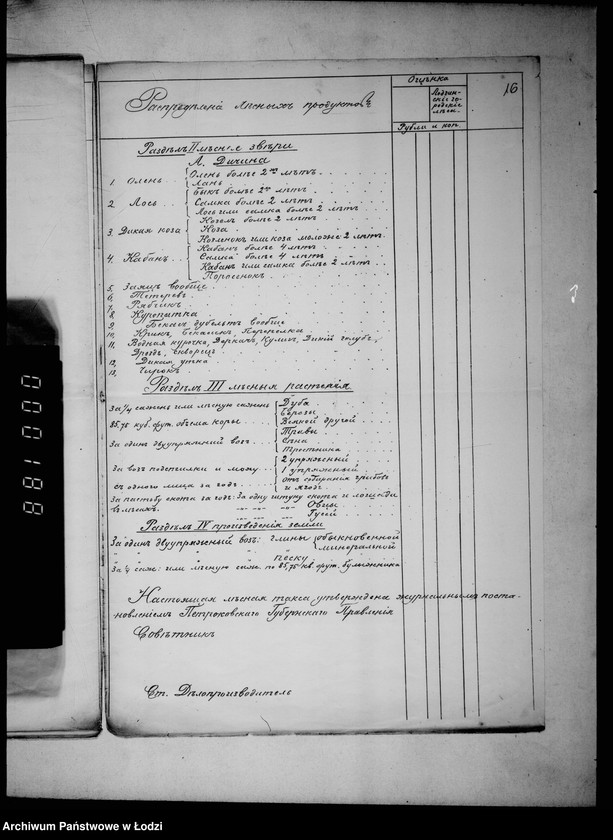 16
Оцѣнка
Распредѣленіе лѣсныхъ продуктовъ
Рубли и коп.
Раздѣлъ II лѣсные звѣри
А. Дичина
1. Олень
Олень болѣе 2 лѣтъ
Лань
Быкъ болѣе 2 лѣтъ
2. Лось
Самка болѣе 2 лѣтъ
Лось или самка болѣе 2 лѣтъ
3. Дикая коза
Козелъ болѣе 2 лѣтъ
Коза
Козленокъ или коза моложе 2 лѣтъ
4. Кабанъ
Кабанъ болѣе 4 лѣтъ
болѣе 4 лѣтъ
Кабанъ или самка болѣе 2 лѣтъ
Поросенокъ
5. вообще
6. Тетеревъ
7. Рябчикъ
8. Куропатка
9. дубельтъ вообще
10.
11. Водяная курочка, Куликъ, Дикій голубь,
Дроздъ, скворецъ
12. Дикая утка
13. Чирокъ
Раздѣлъ III лѣсныя растенія
За 1/4 сажени или лѣсную сажень
85,75 куб. фут. объема коры
Дуба
Березы
Всякой другой
За одинъ двуупряжный возъ
Травы
Сѣна
Тростника
За возъ подстилки и моху
2 упряжный
1 упряжный
съ одного лица за годъ
отъ собиранія грибовъ
и ягодъ
За пастьбу скота за годъ: За одну штуку скота и лошади
въ лѣсахъ.
Овцы
Гусей
Раздѣлъ IV произведенія земли
За одинъ двуупряжный возъ: глины
обыкновенной
минеральной
песку
За 1/4 саж: или лѣсную саж. по 85,75 кв. фут. булыжника
Настоящая лѣсная такса утверждена журнальнымъ поста-
новленіемъ Петроковскаго Губернскаго Правленія
Совѣтникъ
Ст. Дѣлопроизводитель
Archiwum Państwowe w Łodzi